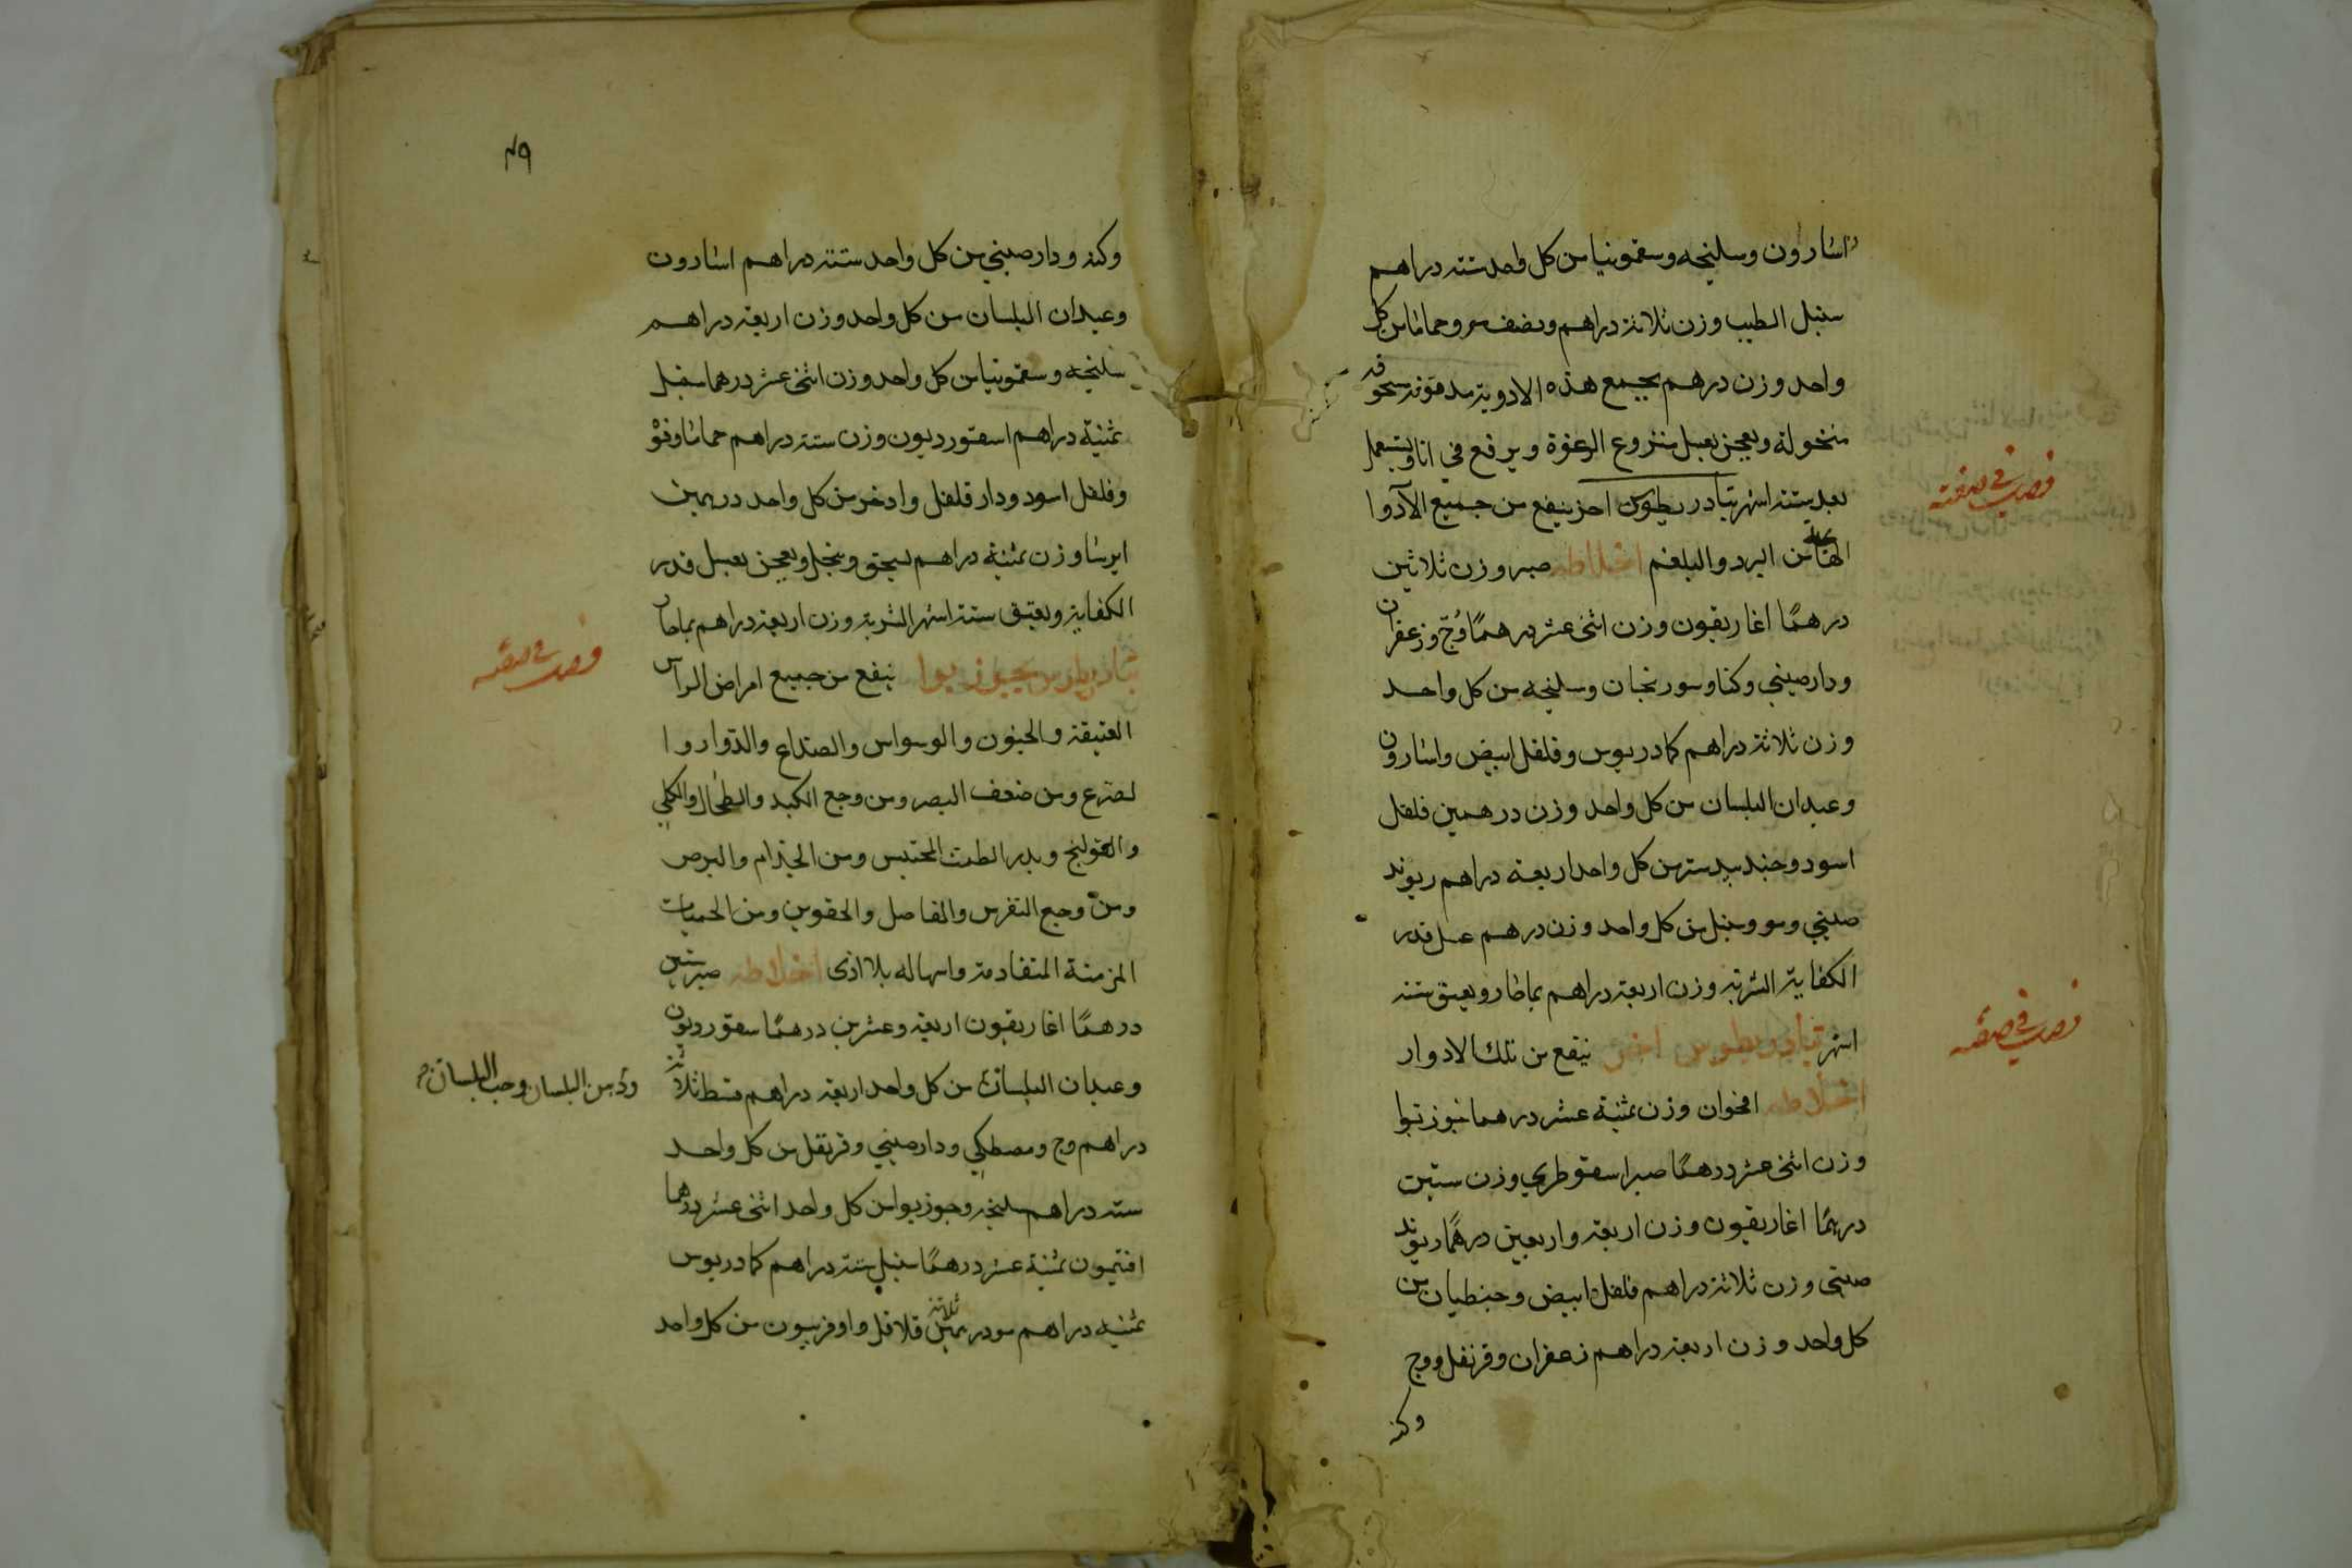 اسارون وسليخه وسقمونيا من كل واحد ستة دراهم
سنبل الطيب وزن ثلاثة دراهم ونصف مر وحماما من كل
واحد وزن درهم يجمع هذه الادوية مدقوقه مسحوقه
منخولة ويعجن بعسل منزوع الرغوة ويرفع في انا ويستعمل
بعد ستة اشهر تيادريطوس اخر ينفع من جميع الادوا
الهايجة من البرد والبلغم اخلاطه صبر وزن ثلاثين
درهمًا اغاريقون وزن اثنى عشر درهمًا وُجّ وزعفران
ودارصيني وكنا وسورنجان وسليخه من كل واحد
وزن ثلاثة دراهم كمادريوس وفلفل ابيض واسارون
وعيدان البلسان من كل واحد وزن درهمين فلفل
اسود وجندبيدستر من كل واحد اربعة دراهم ريوند
صيني ومو وسنبل من كل واحد وزن درهم عسل قدر
الكفاية الشربة وزن اربعة دراهم بماحار ويعتق ستة
اشهر تيادريطوس اخر ينفع من تلك الادوار
اخلاطه افخوان وزن ثمنية عشر درهما جوزبوا
وزن اثنى عشر درهمًا صبر اسقوطري وزن ستين
درهمًا اغاريقون وزن اربعة واربعين درهمًا ريوند
صينى وزن ثلاثة دراهم فلفل ابيض وجنطيان من
كل واحد وزن اربعة دراهم زعفران وقرنفل ووج
وكنه
فصل في صفته
فصل في صفته
٤٩
وكنه ودارصيني من كل واحد ستة دراهم اسارون
وعيدان البلسان من كل واحد وزن اربعة دراهم
سليخه وسقمونيا من كل واحد وزن اثنى عشر درهما سنبل
ثمنية دراهم اسقورديون وزن ستة دراهم حماما وفوْ
وفلفل اسود ودار فلفل واذخر من كل واحد درهمين
ايرسا وزن ثمنية دراهم يسحق وينخل ويعجن بعسل قدر
الكفاية ويعتق ستة اشهر الشربة وزن اربعة دراهم بماحار
تيادريطوس بجوزبوا ينفع من جميع امراض الراس
العتيقة والجنون والوسواس والصداع والدوار وا
لصرع ومن ضعف البصر ومن وجع الكبد والطحال والكلى
والقولنج ويدر الطمث المحتبس ومن الجذام والبرص
ومن وجع النقرس والمفاصل والحقوين ومن الحميات
المزمنة المتقادمة واسهاله بلا اذى اخلاطه صبر ستين
درهمًا اغاريقون اربعة وعشرين درهمًا سقورديون
وعيدان البلسان من كل واحد اربعة دراهم قسط ثلاثة
دراهم وج ومصطكي ودارصيني وقرنفل من كل واحد
ستة دراهم سليخه وجوزبوا من كل واحد اثنى عشر درهما
افتيمون ثمنية عشر درهمًا سنبل ستة دراهم كمادريوس
ثمنيه دراهم مو درهمين ثلاثة فلافل واوفربيون من كل واحد
فصل في صفته
ودهن البلسان وحب البلسان